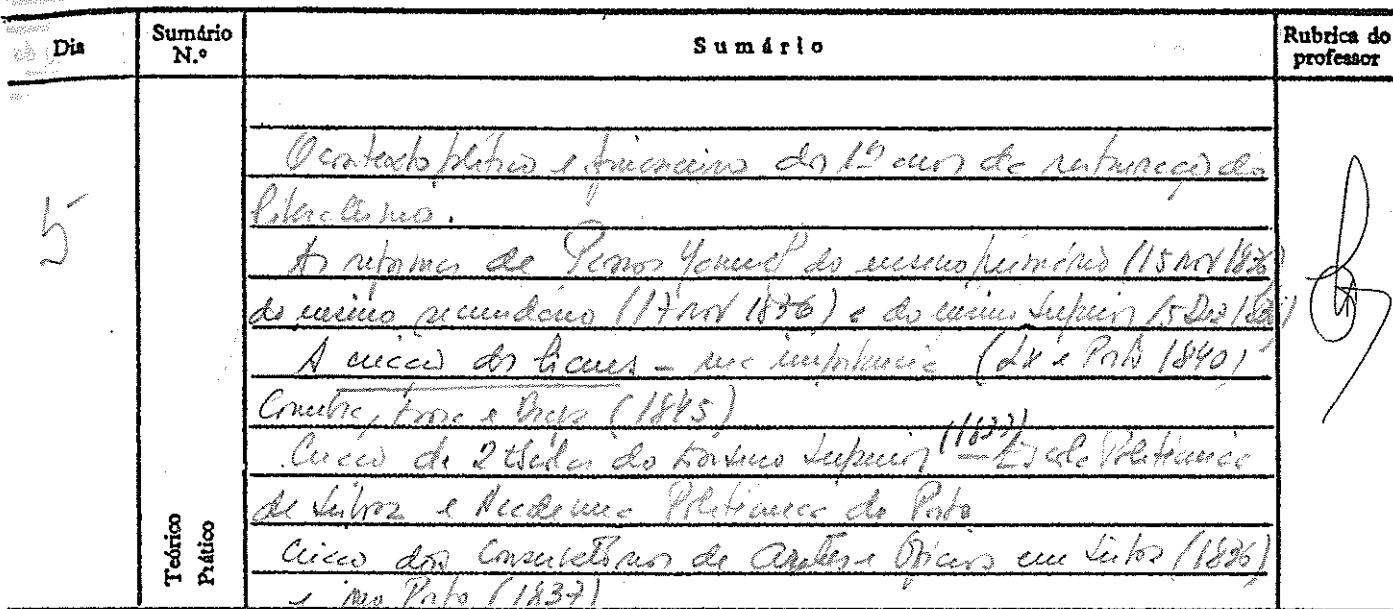 Dia
Sumário N.º
Sumário
Rubrica do professor
5
Teórico
Prático
O contexto político e financeiro dos 1ºs anos da restauração do
liberalismo.
As reformas de Passos Manuel do ensino primário (15 nov 1836)
do ensino secundário (17 nov 1836) e do ensino superior (5 Dez 1836)
A criação dos liceus – sua importância (Lx e Porto 1840)
Coimbra, Évora e Braga (1845)
Criação de 2 Escolas do Ensino Superior (1837) – Escola Politécnica
de Lisboa e Academia Politécnica do Porto
Criação dos Conservatórios de Artes e Ofícios em Lisboa (1836)
e no Porto (1837)